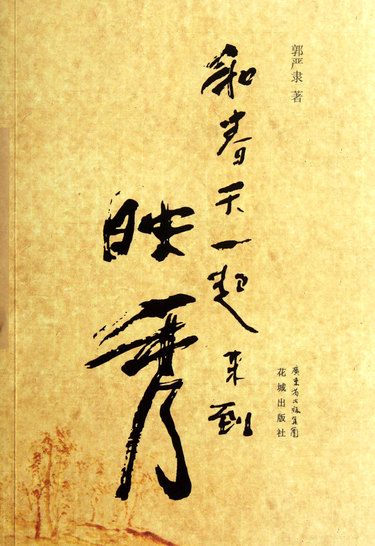 郭严隶 著
和春天一起来到
映秀
廣東省出版集團
花城出版社